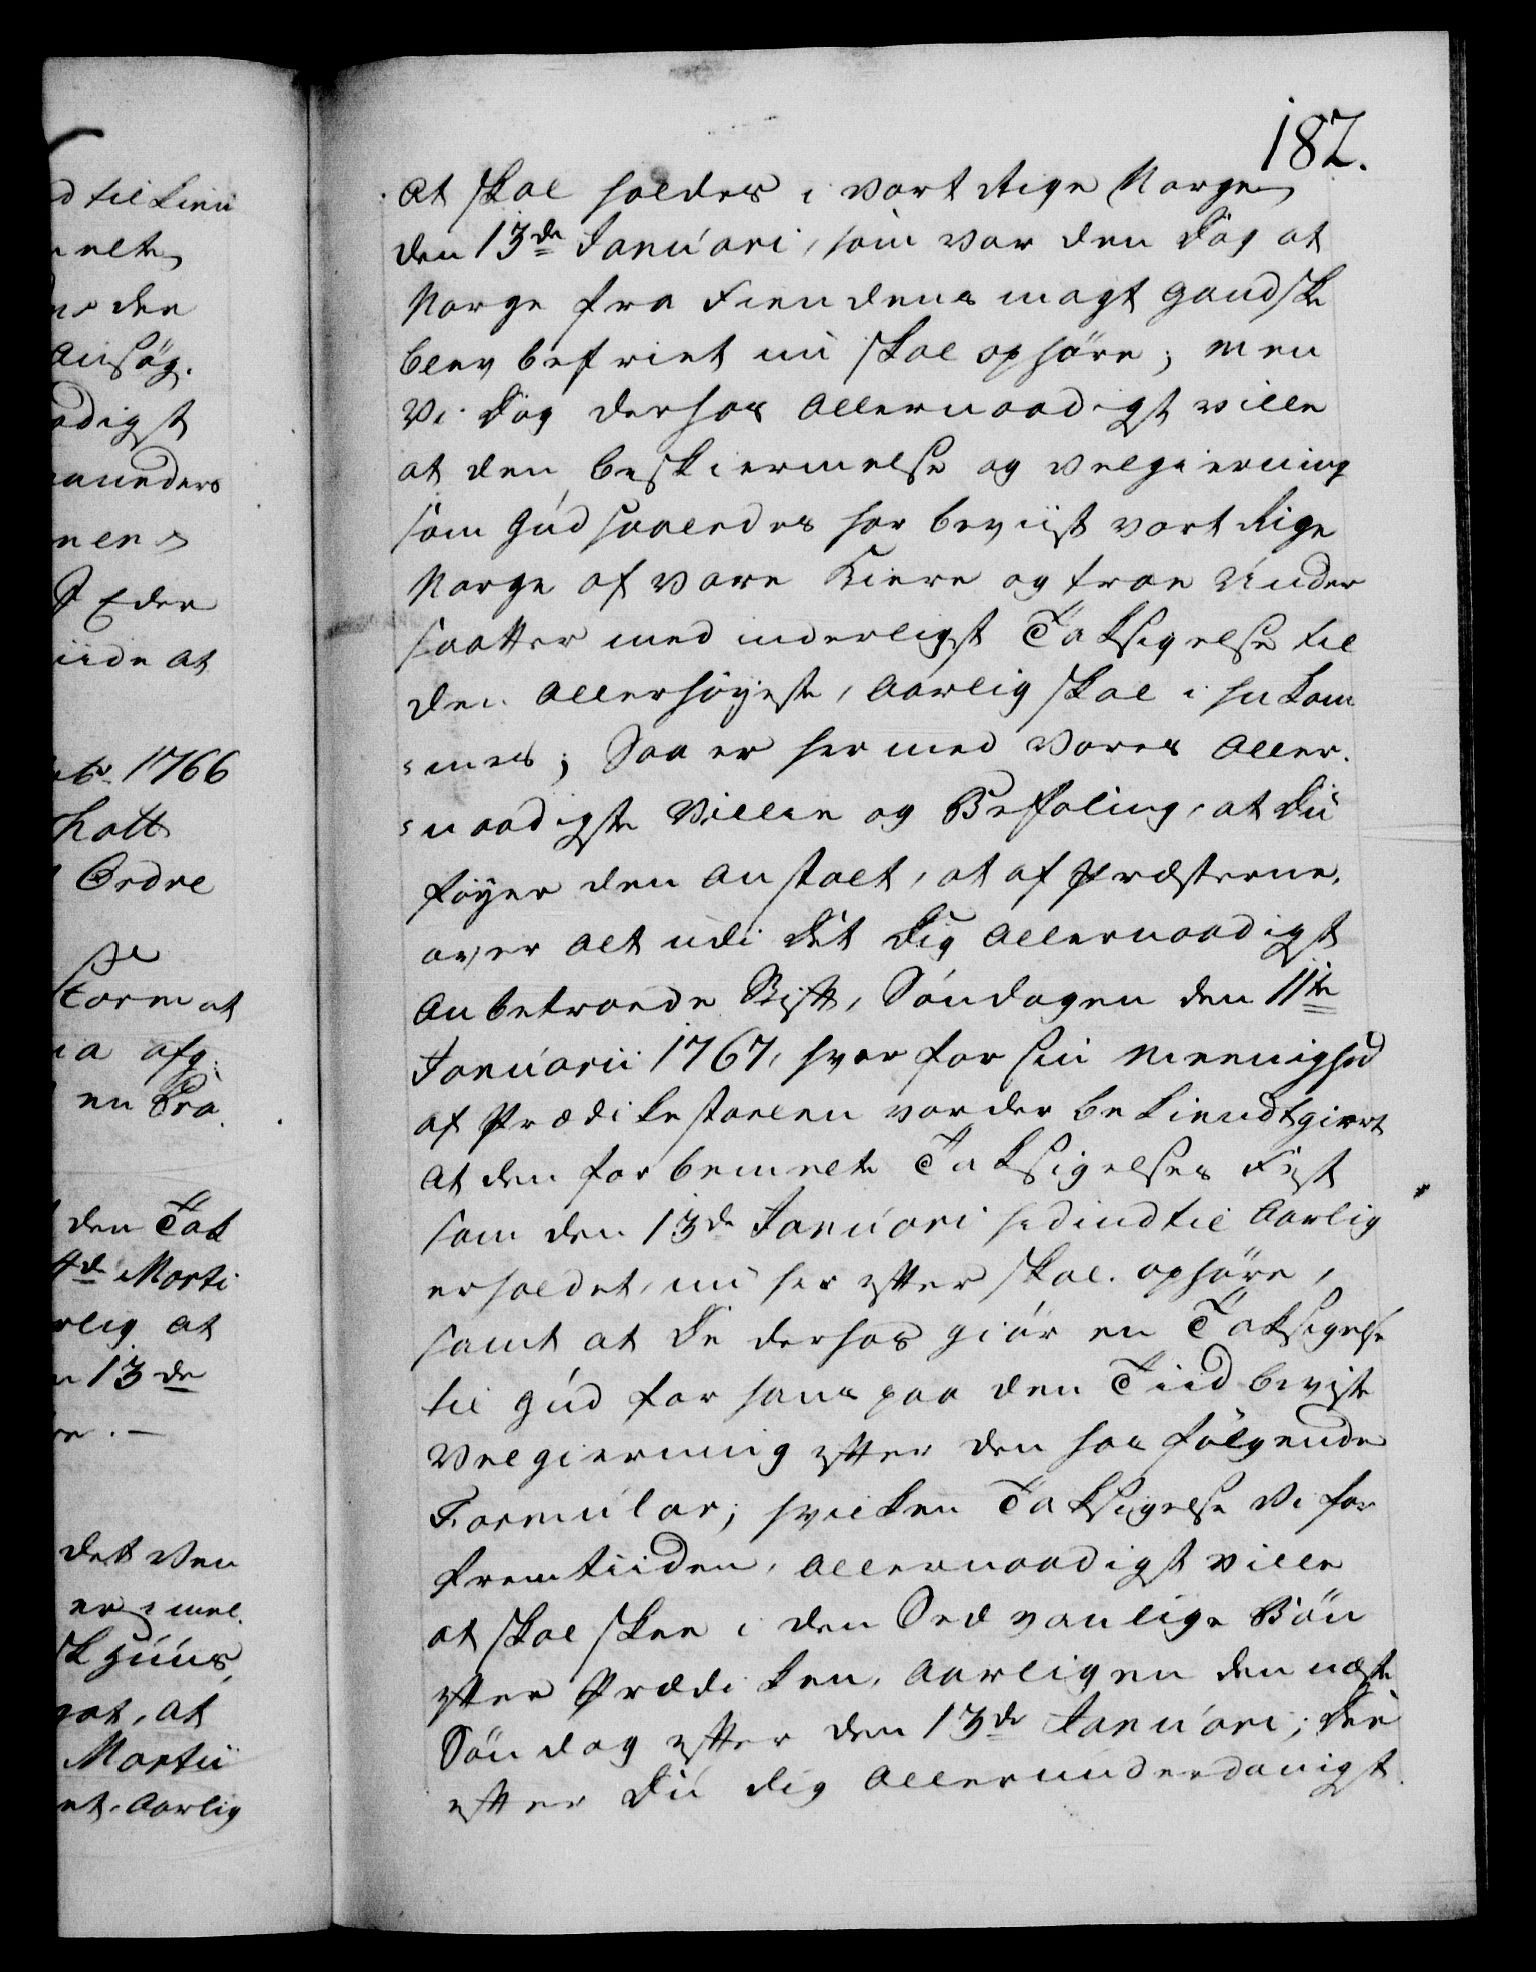 182.
at skal holdes i vort Rige Norge
den 13de Januari, som var den Dag at
Norge fra Fiendens magt gandske
blev befriet nu skal ophøre; men
Vi dog derhos allernaadigst ville
at den beskiermelse og velgierning
som Gud saaledes har beviist vort Rige
Norge af vore kiere og troe Under
saatter med inderligst Taksigelse til
den allerhøyeste, aarlig skal ihukom
mes; Saa er hermed Vores aller
naadigste Villie og Befaling, at Du
føyer den anstalt, at af Præsterne,
over alt udi dit Dig allernaadigst
anbetroede Stift, Søndagen den 11te
Januarii 1767, hver for sin Meenighed
af Prædikestoelen vorder bekiendtgiort
at den forbemelte Taksigelses Fest
som den 13de Januari hidindtil aarlig
er holdet, nu her efter skal ophøre,
samt at De derhos giør en Taksigelse
til Gud for hans paa den Tiid beviste
Velgierning efter den hos følgende
Formular; hvilken Taksigelse Vi for
fremtiiden, allernaadigst ville
at skal skee i den Sædvanlige Bøn
efter Prædiken, aarligen den næste
Søndag efter den 13de Januari; Der
efter Du dig allerunderdanigst
d til Linii
nelte
den
Ansøg.
adigst
Eder
iide at
1766
hatt
Ordre
Form at
a afg.
en Fra
den Tak
4de Marti
rlig at
n 13de
det Ven
er mel.
at, at
Martii
et Aarlig